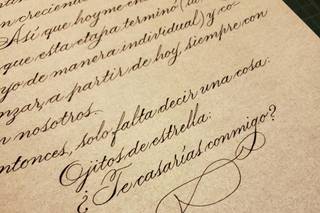 n creciend
Así que hoy me en
que esta etapa terminó (la
jo de manera individual) y co
nzar, a partir de hoy, siempre con
n nosotros.
ntonces, solo falta decir una cosa:
Ojitos de estrella:
¿Te casarías conmigo?